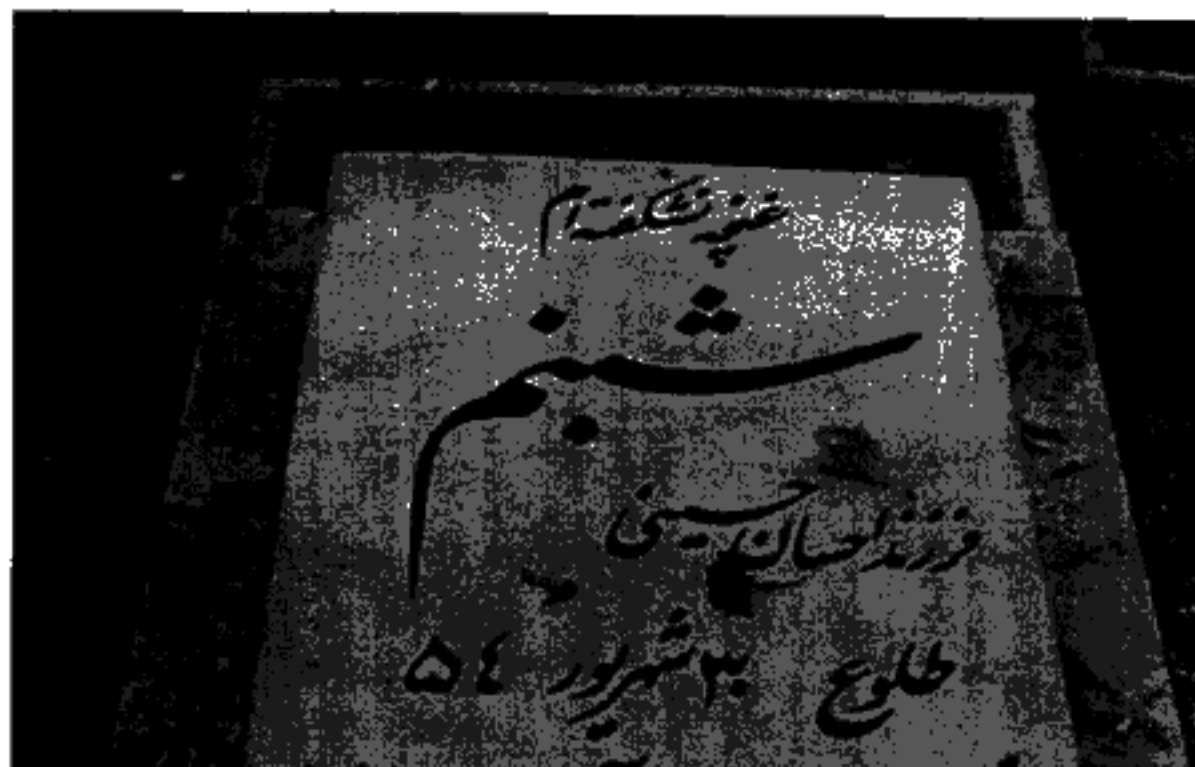 غنچه نشکفته ام
شبنم
فرزند احسان حسینی
طلوع شهریور ۵۴